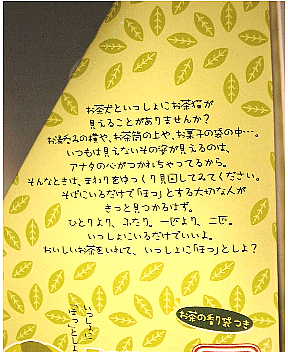 お茶犬といっしょにお茶猫が
見えることがありませんか?
お湯のみの横や、お茶筒の上や、お菓子の袋の中…。
いつもは見えないその姿が見えるのは、
アナタの心がつかれちゃってるから。
そんなときは、まわりをゆっくり見回してみてください。
そばにいるだけで「ほっ」とする大切な人が
きっと見つかるはず。
ひとりより、ふたり。一匹より、二匹。
いっしょにいるだけでいいよ。
おいしいお茶をいれて、いっしょに「ほっ」としよ?
いっしょに
「ほっ」としよ
お茶の香り袋つき